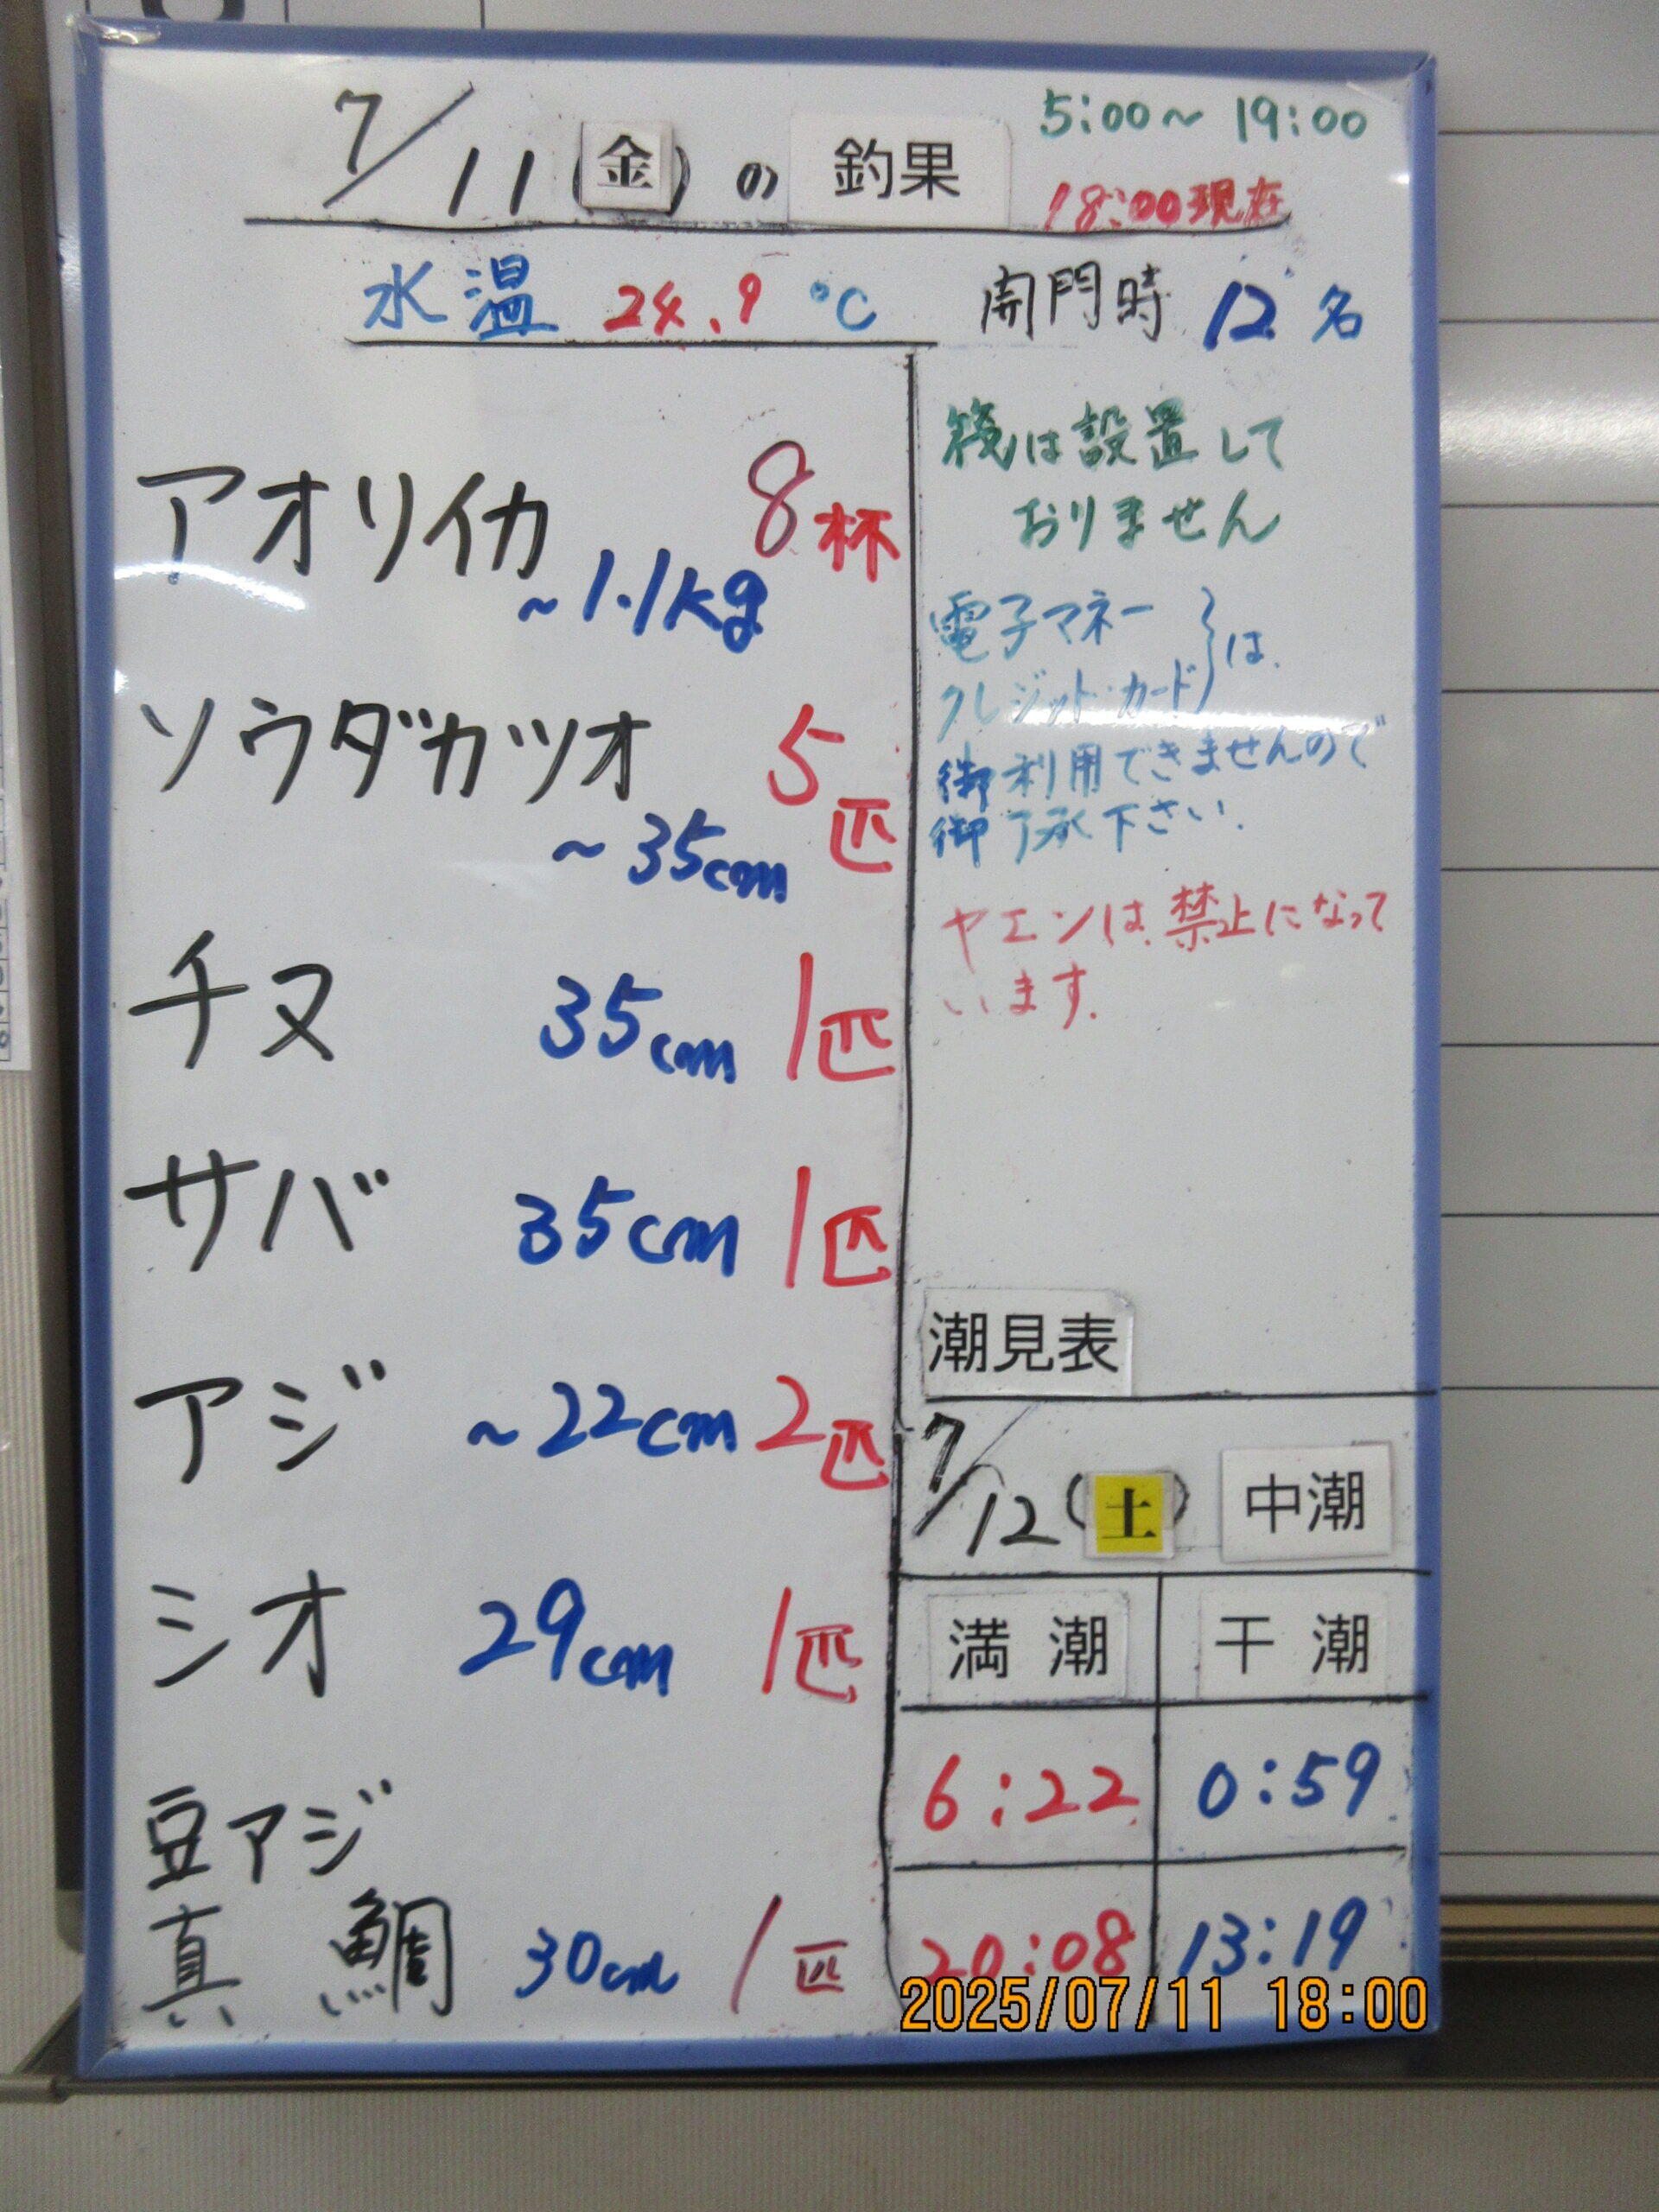 7/11(金)の釣果
5:00～19:00
18:00現在
水温 24.9℃
開門時 12名
アオリイカ 8杯
～1.1kg
ソウダカツオ 5匹
～35cm
チヌ 35cm 1匹
サバ 35cm 1匹
アジ ～22cm 2匹
シオ 29cm 1匹
豆アジ
真鯛 30cm 1匹
筏は設置して
おりません
電子マネー
クレジット・カード}は、
御利用できませんので
御了承下さい.
ヤエンは、禁止になって
います.
潮見表
7/12(土) 中潮
満潮 干潮
6:22 0:59
20:08 13:19
2025/07/11 18:00